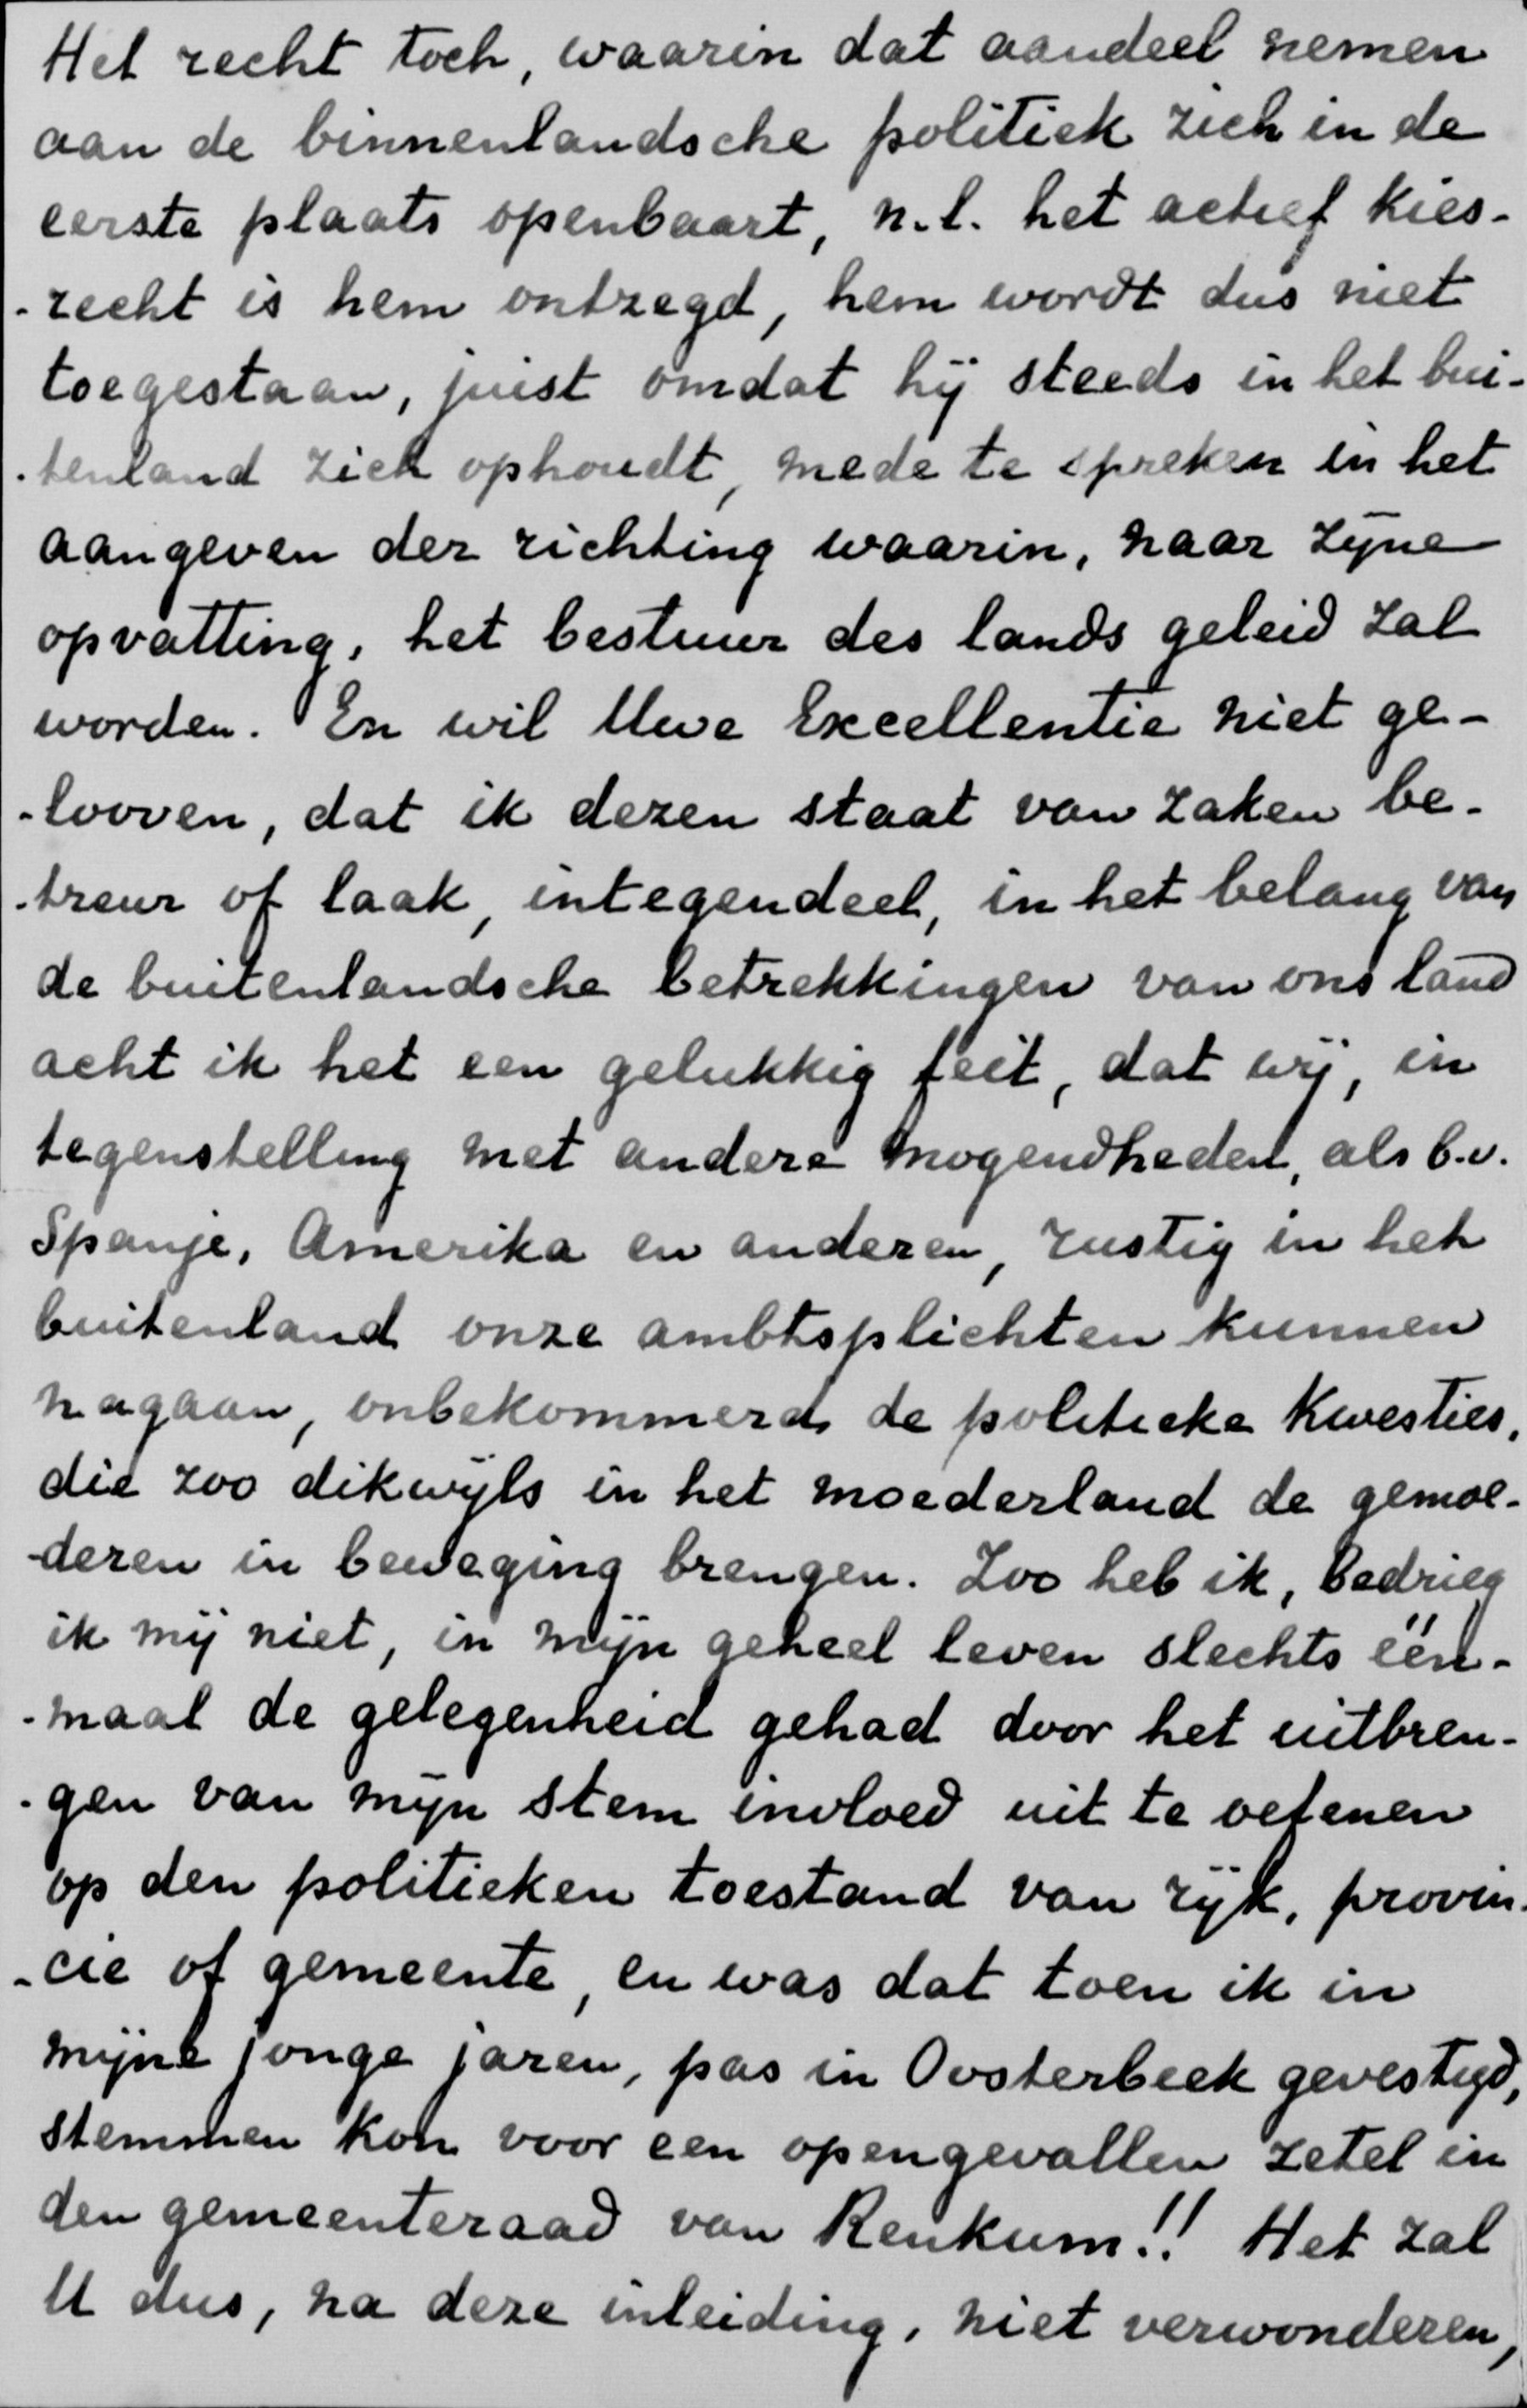 Het recht toch, waarin dat aandeel nemen
aan de binnenlandsche politiek zich in de
eerste plaats openbaart, n.l. het actief kies-
-recht is hem ontzegd, hem wordt dus niet
toegestaan, juist omdat hij steeds in het bui-
-tenland zich ophoudt, mede te spreken in het
aangeven der richting waarin, naar zijne
opvatting, het bestuur des lands geleid zal
worden. En wil Uwe Excellentie niet ge-
-looven, dat ik dezen staat van zaken be-
-treur of laak, integendeel, in het belang van
de buitenlandsche betrekkingen van ons land
acht ik het een gelukkig feit, dat wij, in
tegenstelling met andere mogendheden, als b.v.
Spanje, Amerika en anderen, rustig in het
buitenland onze ambtsplichten kunnen
nagaan, onbekommerd de politieke kwesties,
die zoo dikwijls in het moederland de gemoe-
-deren in beweging brengen. Zoo heb ik, bedrieg
ik mij niet, in mijn geheel leven slechts één-
-maal de gelegenheid gehad door het uitbren-
-gen van mijn stem invloed uit te oefenen
op den politieken toestand van rijk, provin-
-cie of gemeente, en was dat toen ik in
mijne jonge jaren, pas in Oosterbeek gevestigd,
stemmen kon voor een opengevallen zetel in
den gemeenteraad van Renkum!! Het zal
U dus, na deze inleiding, niet verwonderen,